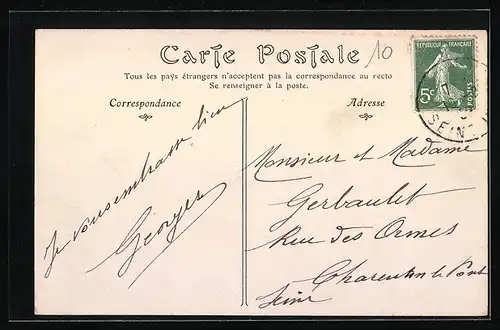 Carte Postale
10
Tous les pays étrangers n'acceptent pas la correspondance au recto
Se renseigner à la poste.
Correspondance
Adresse
RÉPUBLIQUE FRANÇAISE
5c
POSTES
SEINE
Je vous embrasse bien
Georges
Monsieur et Madame
Gerbault
Rue des Ormes
Charenton le Pont
Seine